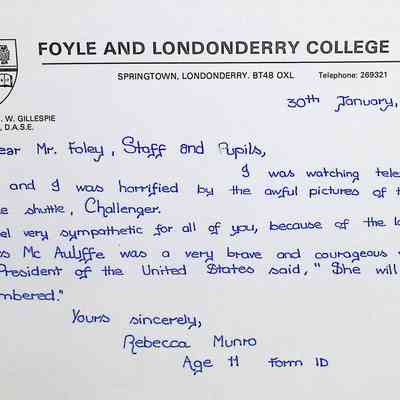 FOYLE AND LONDONDERRY COLLEGE
SPRINGTOWN, LONDONDERRY. BT48 OXL Telephone: 269321
. W. GILLESPIE
, D.A.S.E.
30th January,
ear Mr. Foley, Staff and Pupils,
I was watching tele
and I was horrified by the awful pictures of t
e shuttle, Challenger.
el very sympathetic for all of you, because of the lo
ss Mc Auliffe was a very brave and courageous
President of the United States said, "She will
mbered."
Yours sincerely,
Rebecca Munro
Age 11 Form 1D